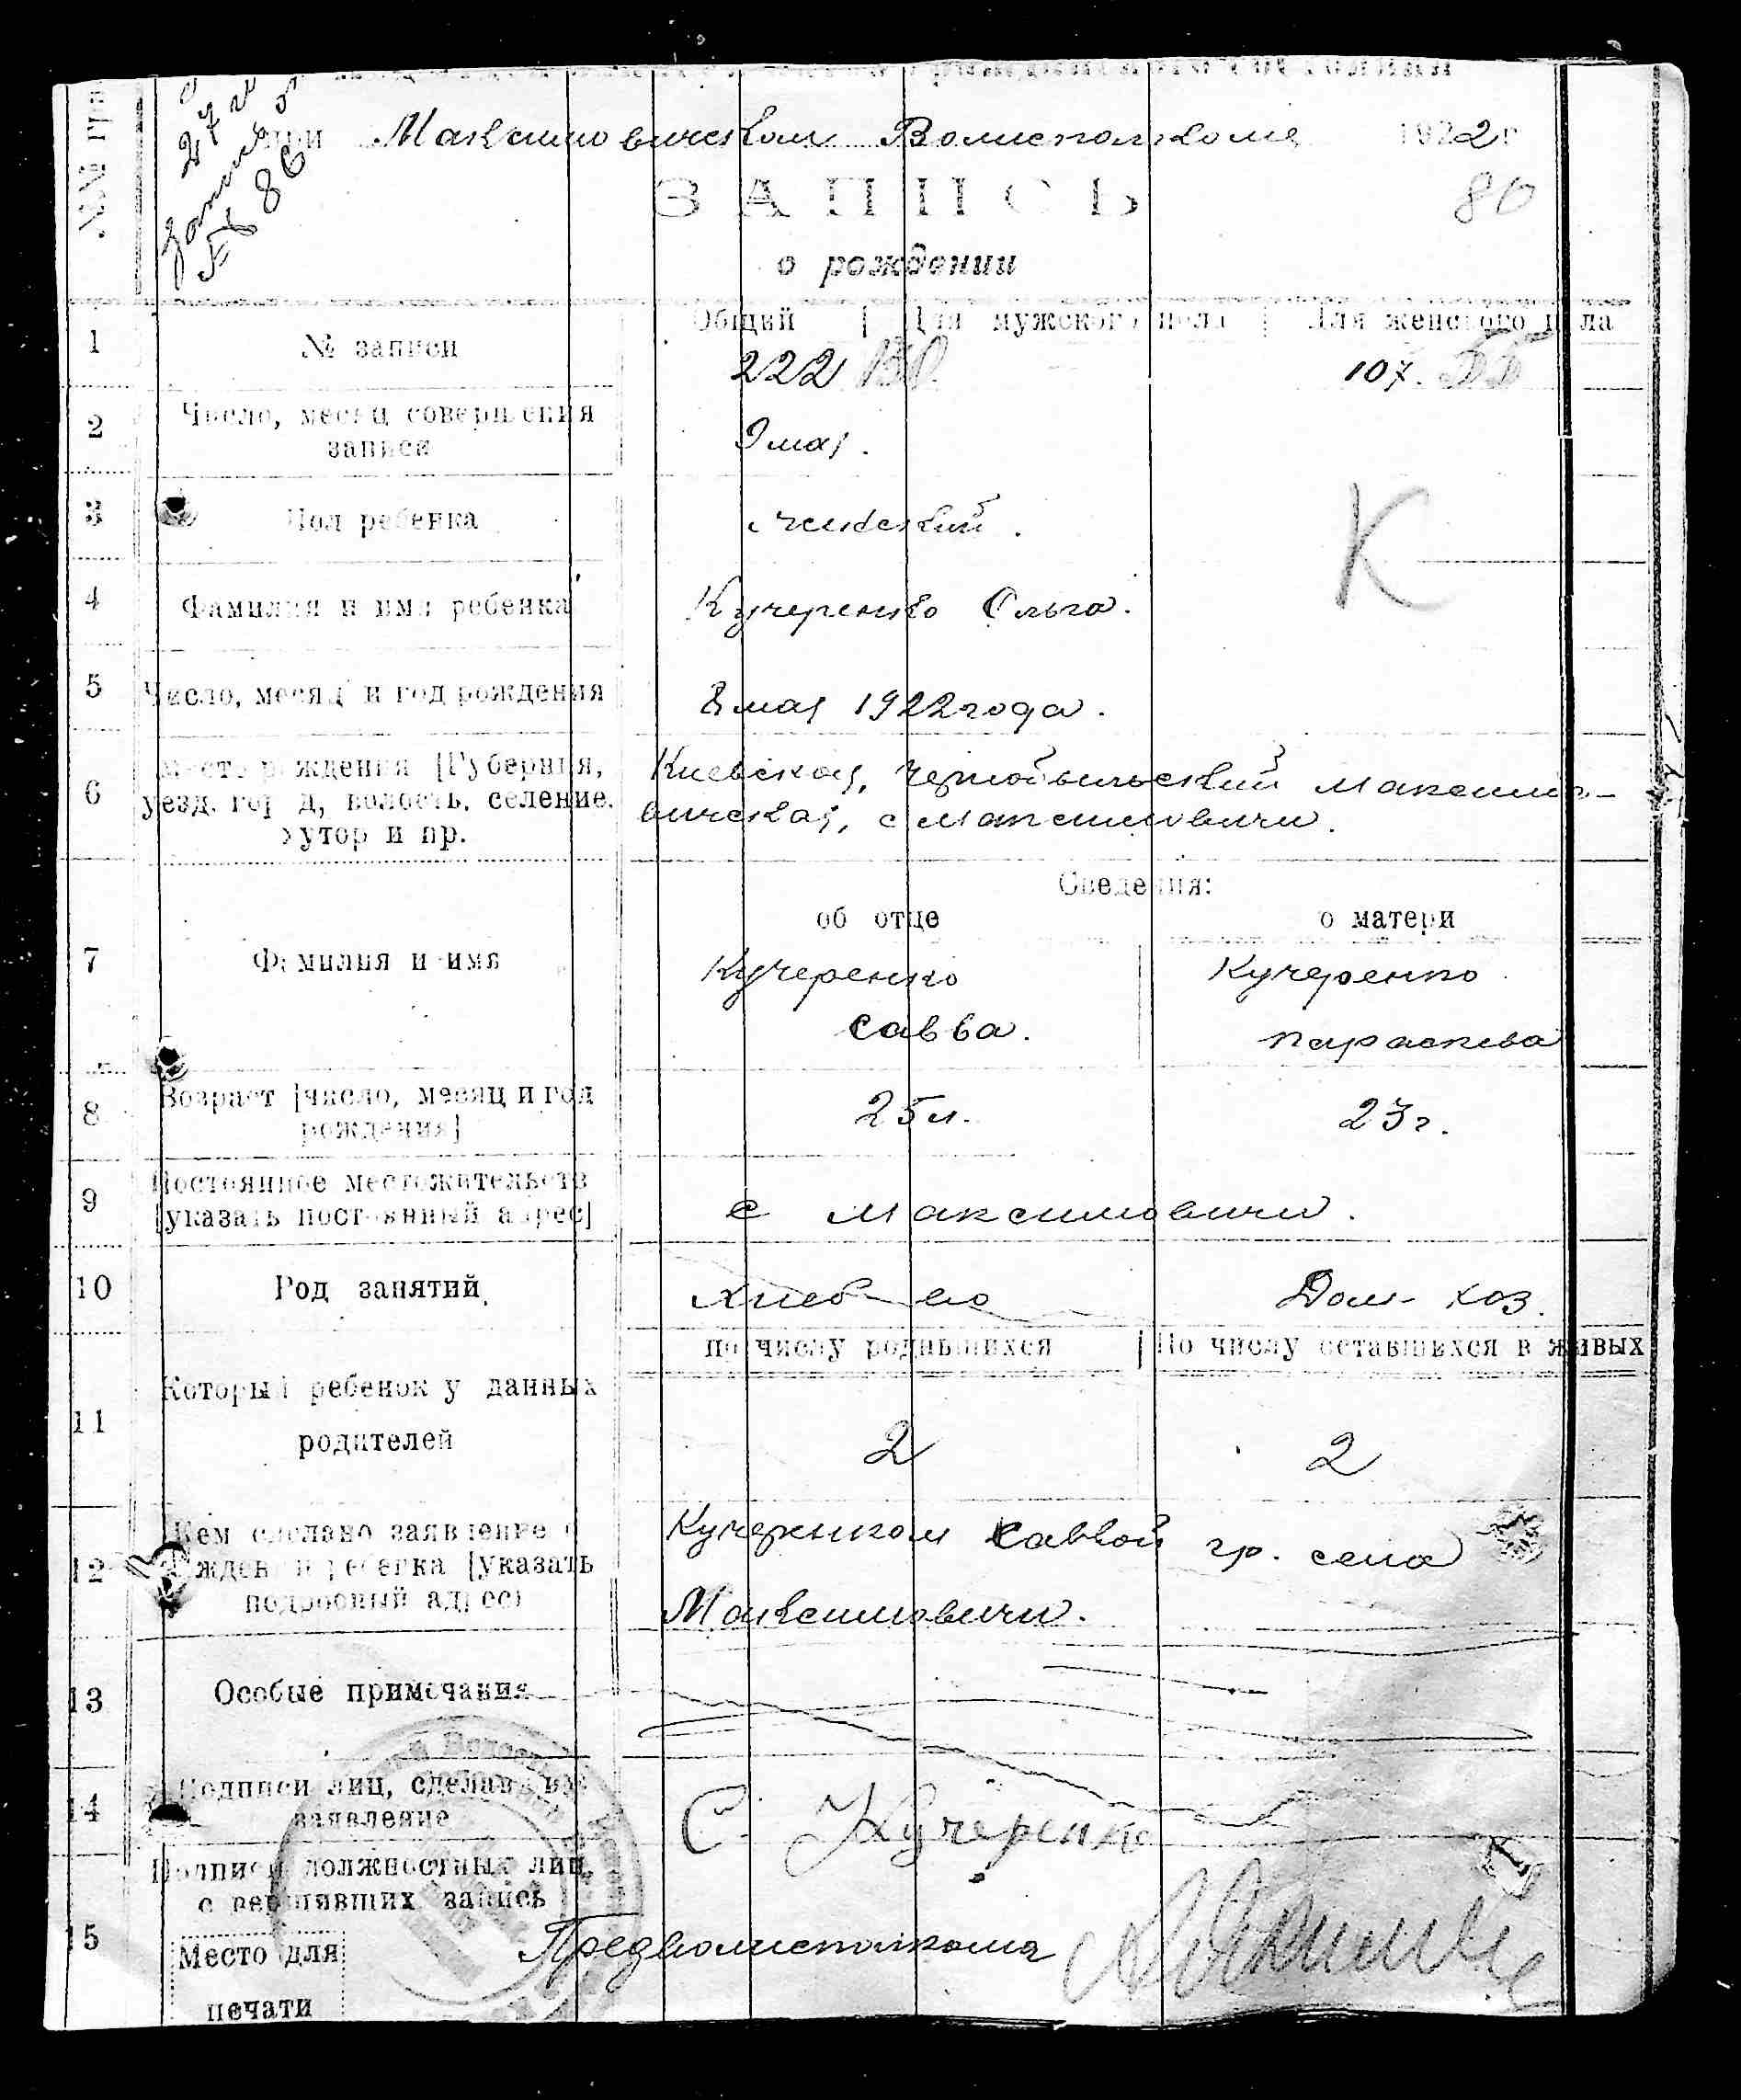 №№ гра
27
№ 86
при Максимовическом Волисполкоме 1922 г
80
ЗАПИСЬ
о рождении
Общий | Для мужского пола | Для женского пола
1 № записи 222 107.
2 Число, месяц совершения
записи 9 мая.
3 Пол ребенка женский.
К
4 Фамилия и имя ребенка Кучеренко Ольга.
5 Число, месяц и год рождения 8 мая 1922 года.
6 Место рождения [Губерния,
уезд, город, волость, селение,
хутор и пр.
Киевская, Чернобыльский Максимо-
вическая, с Максимовичи.
Сведения:
об отце о матери
7 Фамилия и имя Кучеренко Кучеренко
Савва. Параскева
8 Возраст [число, месяц и год
рождения] 25 л. 23 г.
9 Постоянное местожительств
[указать постоянный адрес] с Максимовичи.
10 Род занятий Хлеб-во Дом-хоз.
по числу родившихся | По числу оставшихся в живых
11 Который ребенок у данных
родителей 2 2
12 Кем сделано заявление о
рождении ребенка [указать
подробный адрес]
Кучеренком Саввой гр. села
Максимовичи.
13 Особые примечания
14 Подписи лиц, сделавших
заявление С. Кучеренко
15 Подписи должностных лиц,
совершивших запись
Предволисполкома
Место для
печати